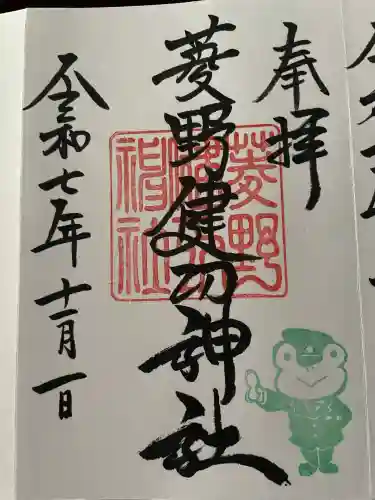 奉拝
菱野健功神社
令和七年十一月一日
菱野
神社